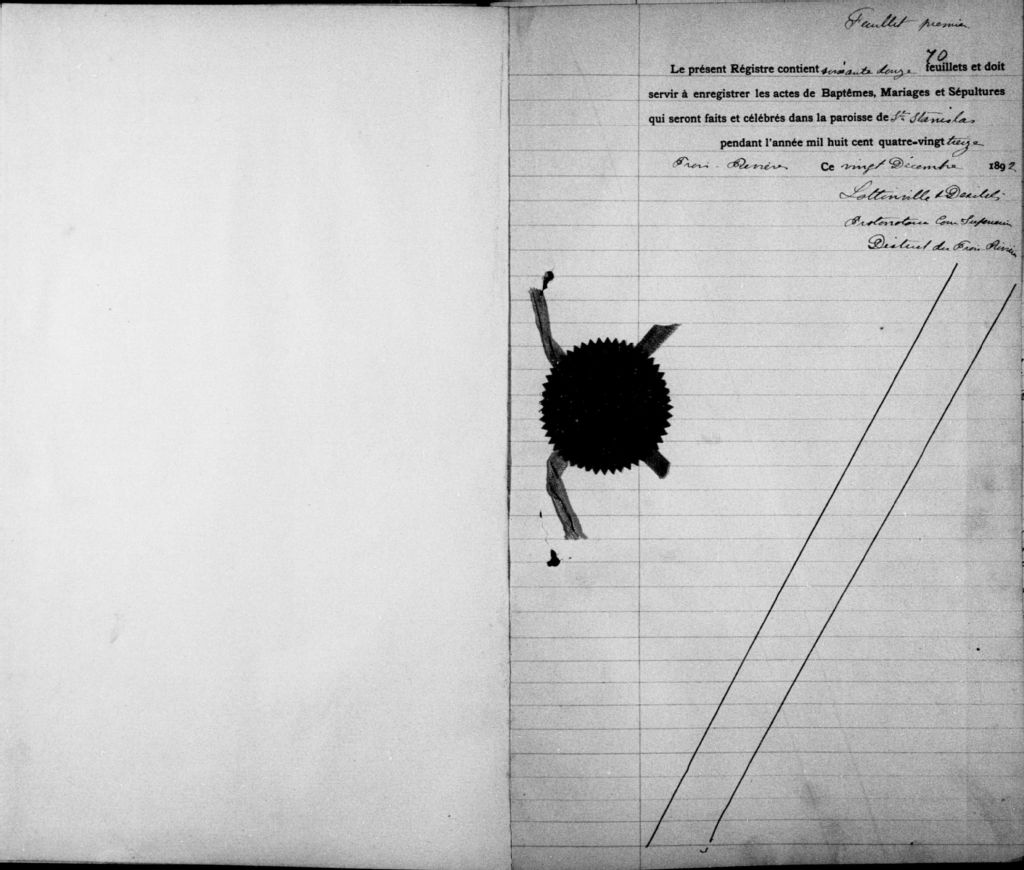 Feuillet premier
70
Le présent Régistre contient soixante douze feuillets et doit
servir à enregistrer les actes de Baptêmes, Mariages et Sépultures
qui seront faits et célébrés dans la paroisse de St. Stanislas
pendant l'année mil huit cent quatre-vingt treize
Trois-Rivières Ce vingt Décembre 1892
Lottinville & Desilets
Protonotaire Cour Supérieure
District des Trois Rivières